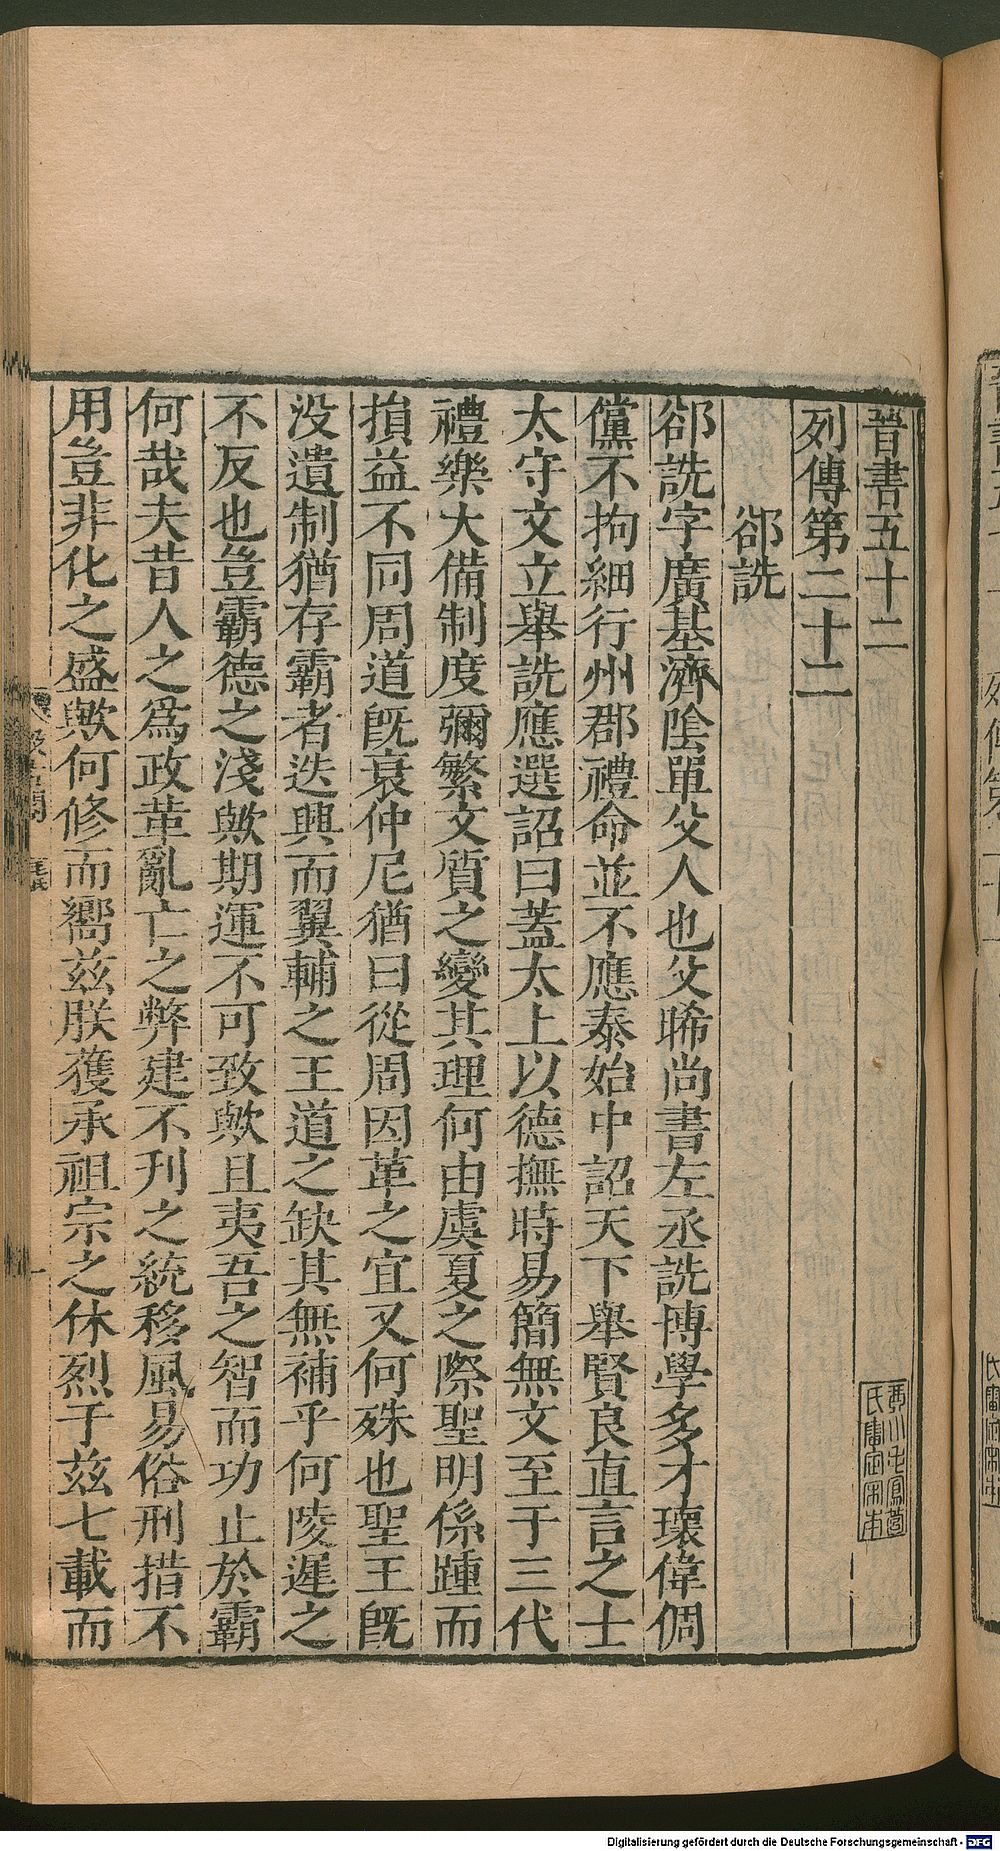 晉書五十二
列傳第二十二
郤詵
郤詵字廣基濟陰單父人也父晞尚書左丞詵博學多才瓌偉倜
儻不拘細行州郡禮命並不應泰始中詔天下舉賢良直言之士
太守文立舉詵應選詔曰蓋太上以德撫時易簡無文至于三代
禮樂大備制度彌繁文質之變其理何由虞夏之際聖明係踵而
損益不同周道旣衰仲尼猶曰從周因革之宜又何殊也聖王旣
没遺制猶存霸者迭興而翼輔之王道之缺其無補乎何陵遲之
不反也豈霸德之淺歟期運不可致歟且夷吾之智而功止於霸
何哉夫昔人之爲政革亂亡之弊建不刊之統移風易俗刑措不
用豈非化之盛歟何修而嚮兹朕獲承祖宗之休烈于兹七載而
Digitalisierung gefördert durch die Deutsche Forschungsgemeinschaft - DFG